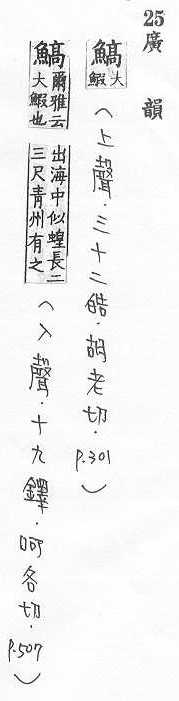 25廣韻
鰝大鰕(上聲.三十二晧.胡老切.P.301)
鰝爾雅云大鰕也出海中似蝗長二三尺青州有之(入聲.十九鐸.呵各切.P.507)